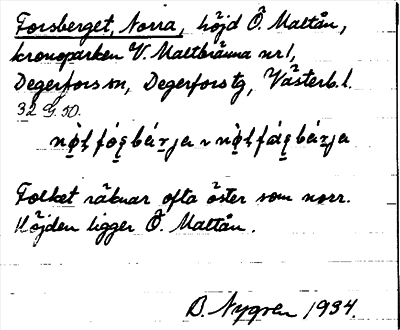 Forsberget, Norra, höjd Ö. Maltån,
kronoparken V. Maltbränna nr 1,
Degerfors sn, Degerfors tg, Västerb. l.
32 G. 50.
Folket räknar ofta öster som norr.
Höjden ligger Ö. Maltån.
B. Nygren 1934.